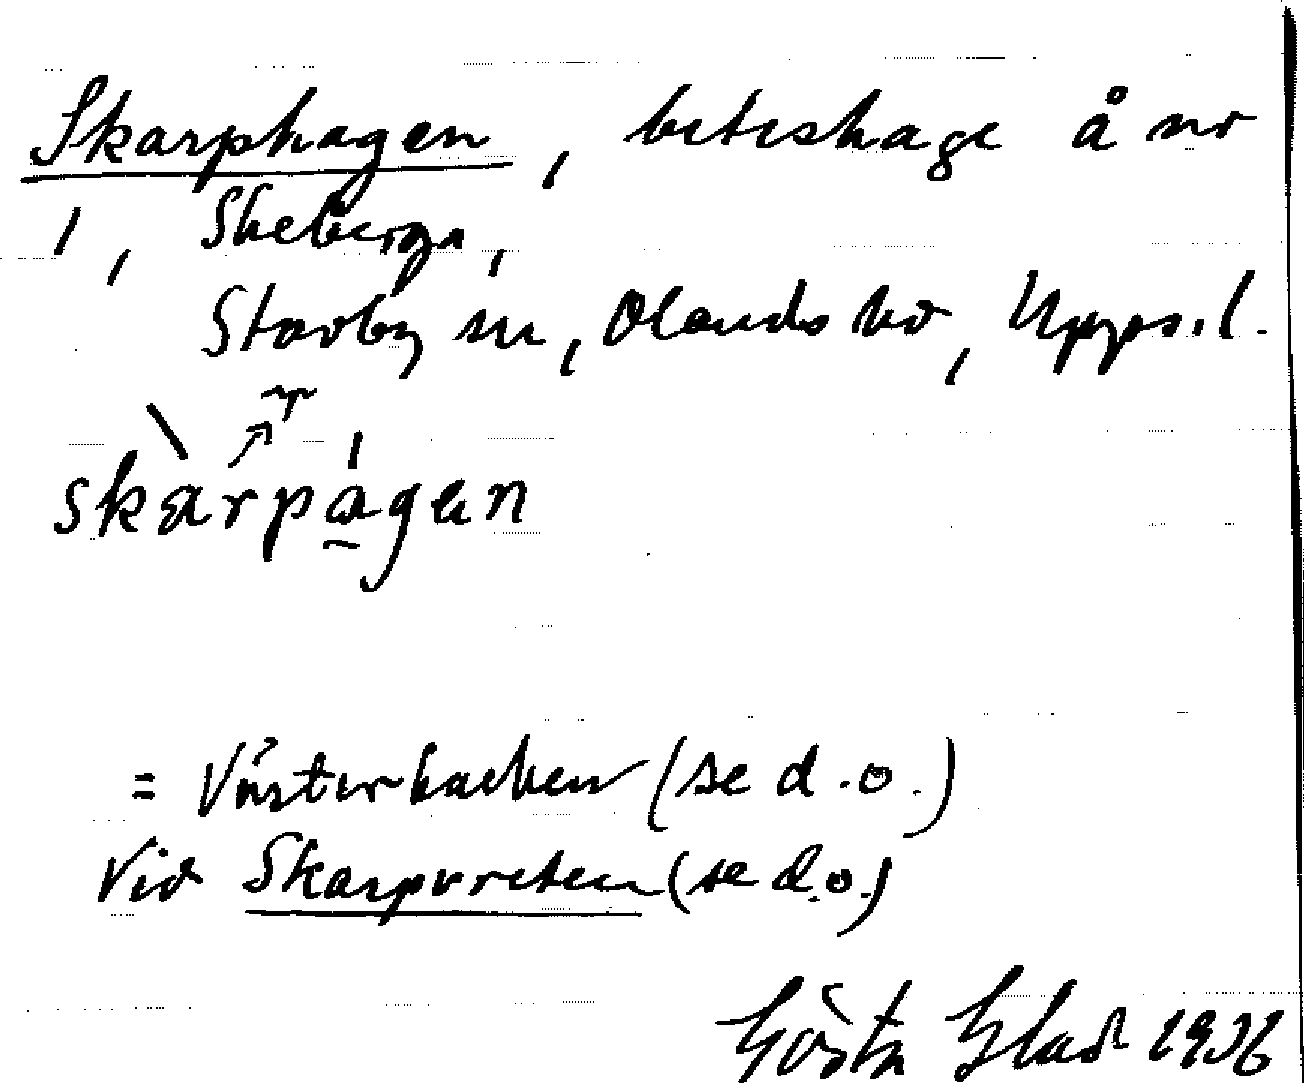 Skarphagen, beteshage å nr
1, Skeberga,
Starby sn, Olands hd, Upps.l.
skàrpágen
= Västerbacken (se d.o.)
Vid Skarpvreten (se d.o.)
Gösta Blad 1936